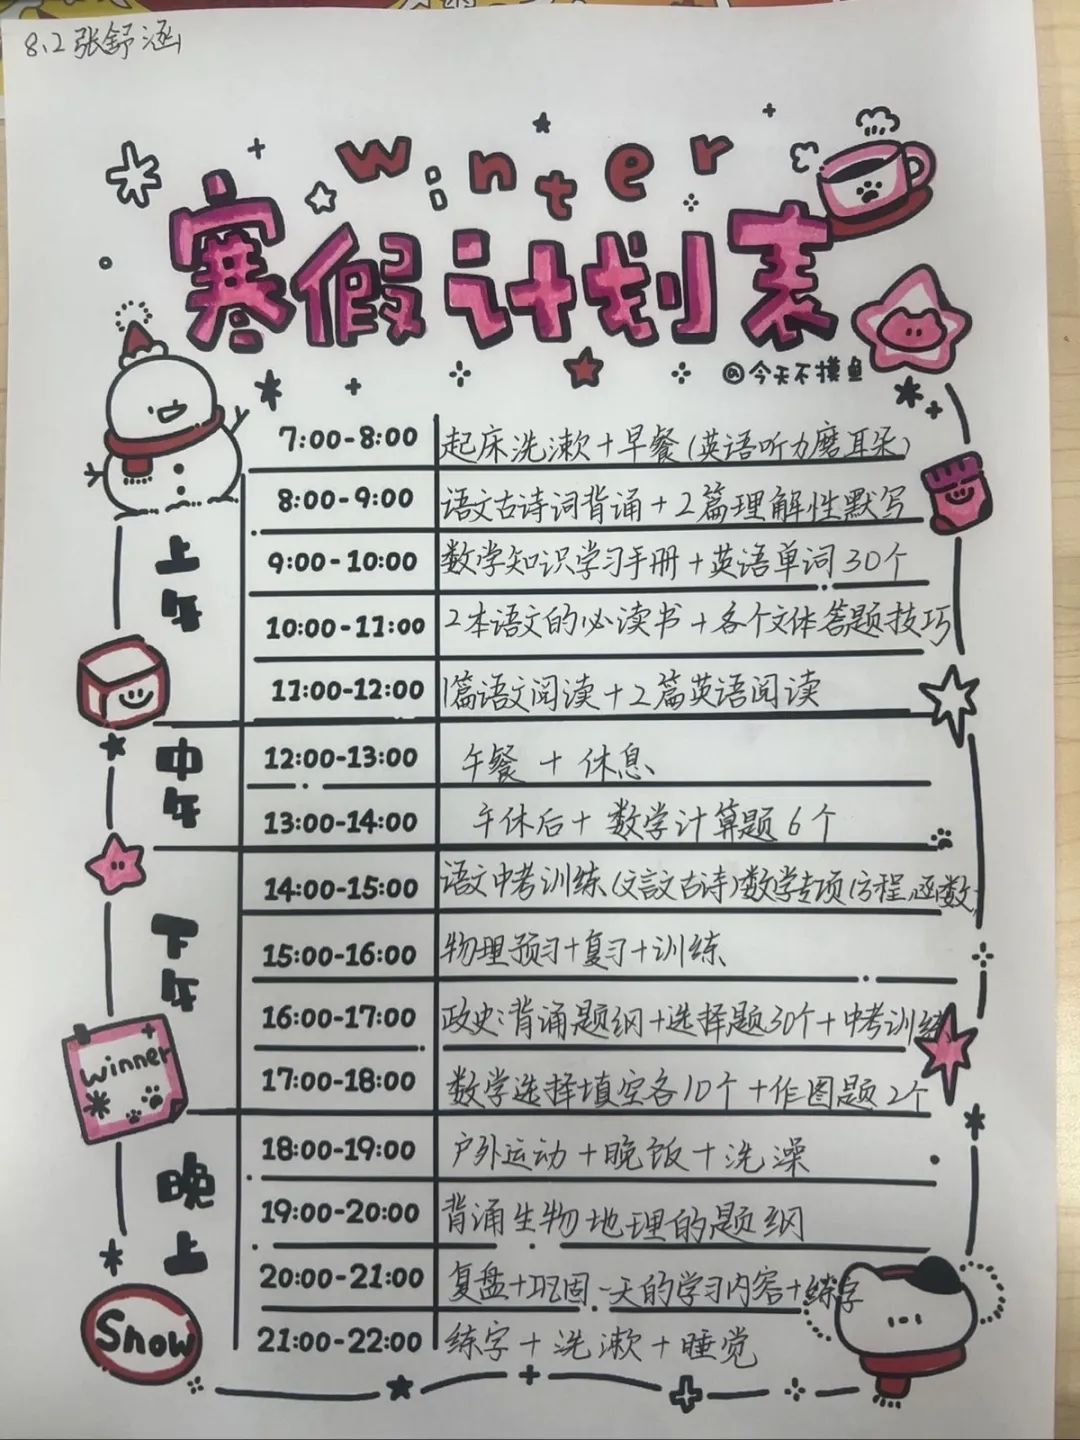 8.2张舒涵
winter
寒假计划表
@今天不摸鱼
7:00-8:00 起床洗漱+早餐(英语听力磨耳朵)
8:00-9:00 语文古诗词背诵+2篇理解性默写
上午
9:00-10:00 数学知识学习手册+英语单词30个
10:00-11:00 2本语文的必读书+各个文体答题技巧
11:00-12:00 1篇语文阅读+2篇英语阅读
中午
12:00-13:00 午餐+休息
13:00-14:00 午休后+数学计算题6个
14:00-15:00 语文中考训练(文言文古诗)数学专项(方程,函数)
下午
15:00-16:00 物理预习+复习+训练
16:00-17:00 政史:背诵题纲+选择题30个+中考训练
winner
17:00-18:00 数学选择填空各10个+作图题2个
18:00-19:00 户外运动+晚饭+洗澡
晚上
19:00-20:00 背诵生物地理的题纲
20:00-21:00 复盘+巩固一天的学习内容+练字
Snow
21:00-22:00 练字+洗漱+睡觉